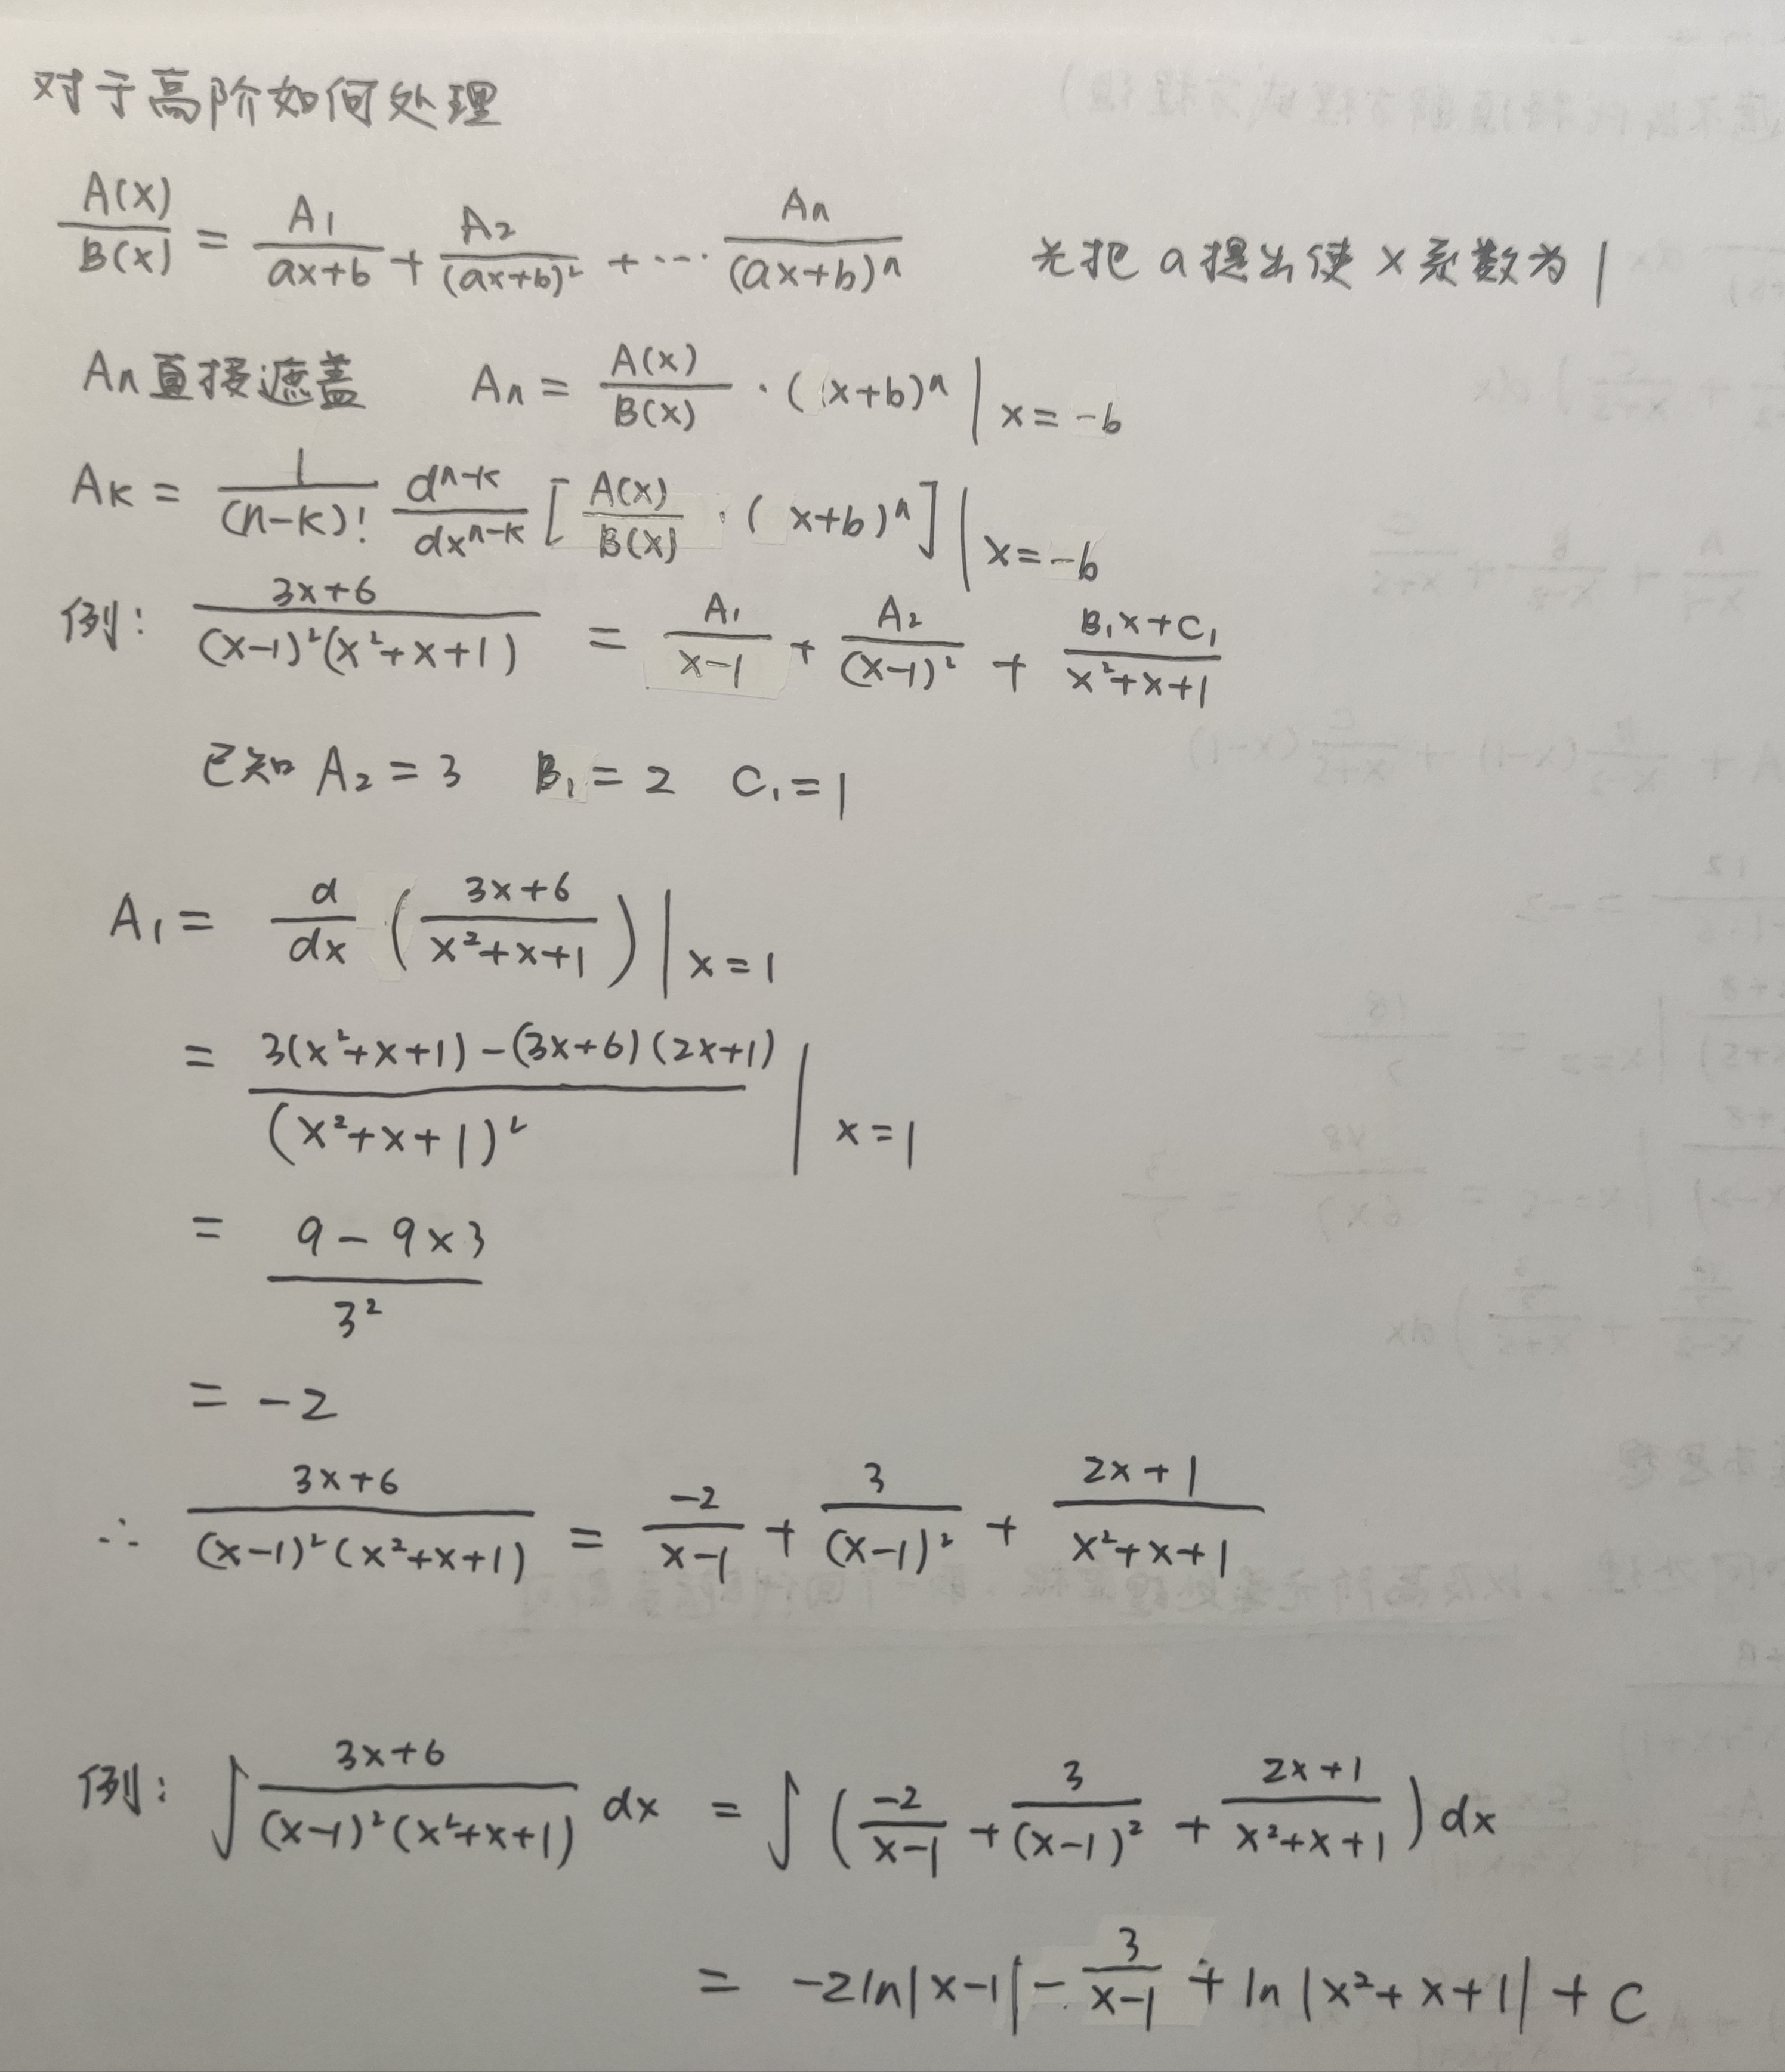 对于高阶如何处理
A(x)/B(x) = A₁/(ax+b) + A₂/(ax+b)² + ⋯ Aₙ/(ax+b)ⁿ 先把a提出使x系数为1
Aₙ直接遮盖 Aₙ = A(x)/B(x) · (x+b)ⁿ | x=-b
Aₖ = 1/(n-k)! dⁿ⁻ᵏ/dxⁿ⁻ᵏ [A(x)/B(x) · (x+b)ⁿ] | x=-b
例: (3x+6)/((x-1)²(x²+x+1)) = A₁/(x-1) + A₂/(x-1)² + (B₁x+C₁)/(x²+x+1)
已知 A₂=3 B₁=2 C₁=1
A₁ = d/dx ((3x+6)/(x²+x+1)) | x=1
= (3(x²+x+1)-(3x+6)(2x+1))/(x²+x+1)² | x=1
= (9-9×3)/3²
= -2
∴ (3x+6)/((x-1)²(x²+x+1)) = -2/(x-1) + 3/(x-1)² + (2x+1)/(x²+x+1)
例: ∫ (3x+6)/((x-1)²(x²+x+1)) dx = ∫ (-2/(x-1) + 3/(x-1)² + (2x+1)/(x²+x+1)) dx
= -2ln|x-1| - 3/(x-1) + ln|x²+x+1| + C